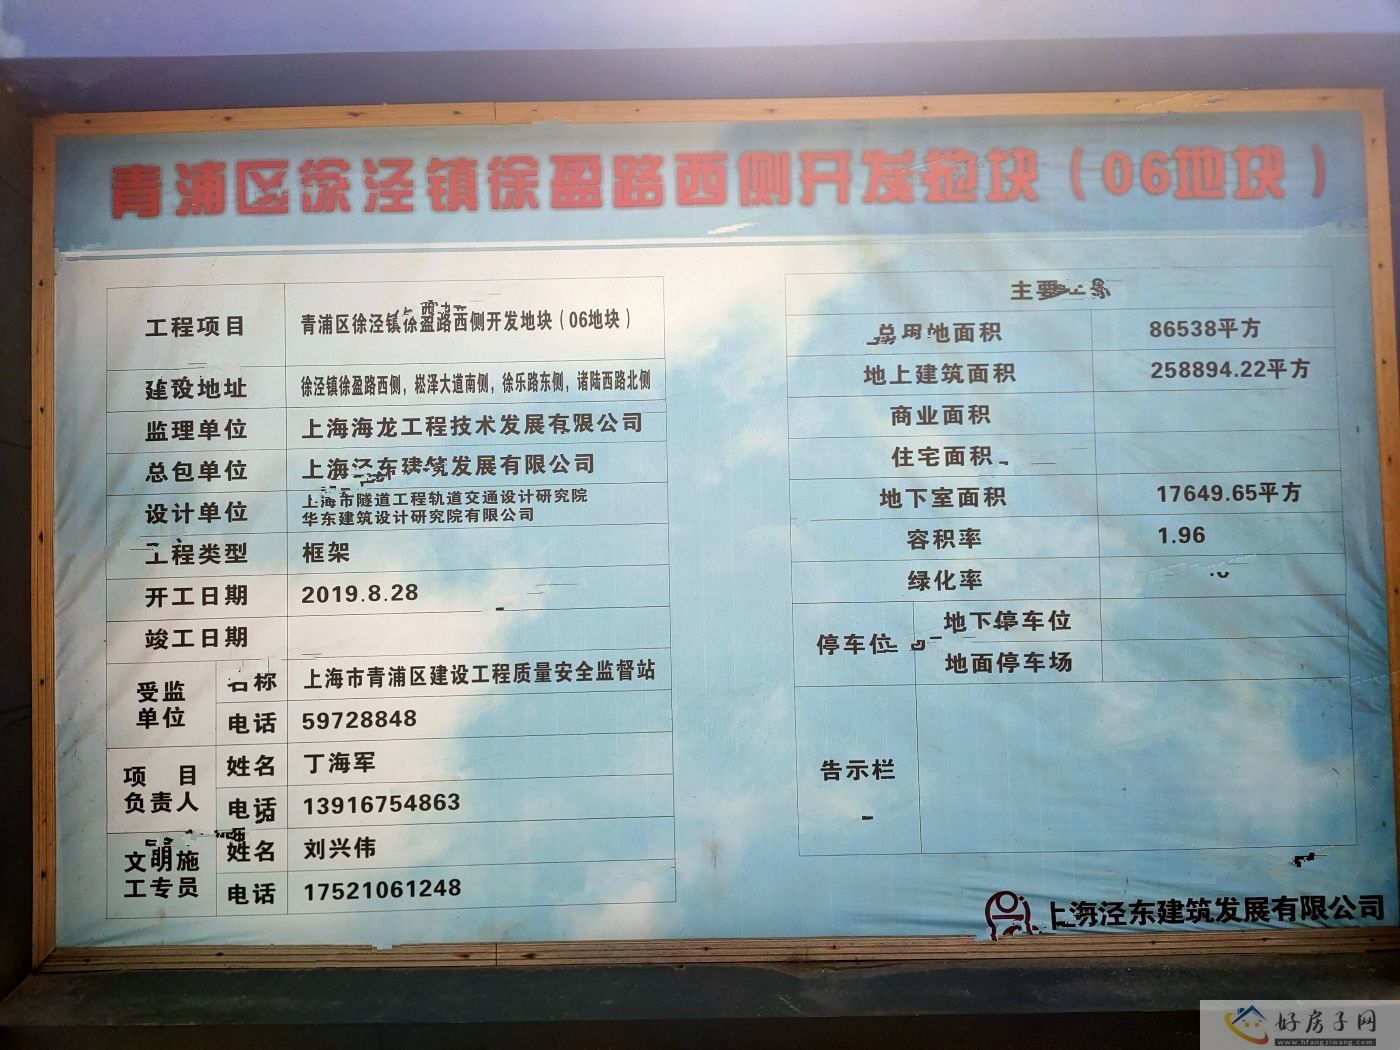 青浦区徐泾镇徐盈路西侧开发地块（06地块）
工程项目 青浦区徐泾镇徐盈路西侧开发地块（06地块）
建设地址 徐泾镇徐盈路西侧，崧泽大道南侧，徐乐路东侧，诸陆西路北侧
监理单位 上海海龙工程技术发展有限公司
总包单位 上海泾东建筑发展有限公司
设计单位 上海市隧道工程轨道交通设计研究院
华东建筑设计研究院有限公司
工程类型 框架
开工日期 2019.8.28
竣工日期
受监单位 名称 上海市青浦区建设工程质量安全监督站
电话 59728848
项目负责人 姓名 丁海军
电话 13916754863
文明施工专员 姓名 刘兴伟
电话 17521061248
主要
总用地面积 86538平方
地上建筑面积 258894.22平方
商业面积
住宅面积
地下室面积 17649.65平方
容积率 1.96
绿化率
停车位 地下停车位
地面停车场
告示栏
上海泾东建筑发展有限公司
好房子网
www.hfangziwang.com